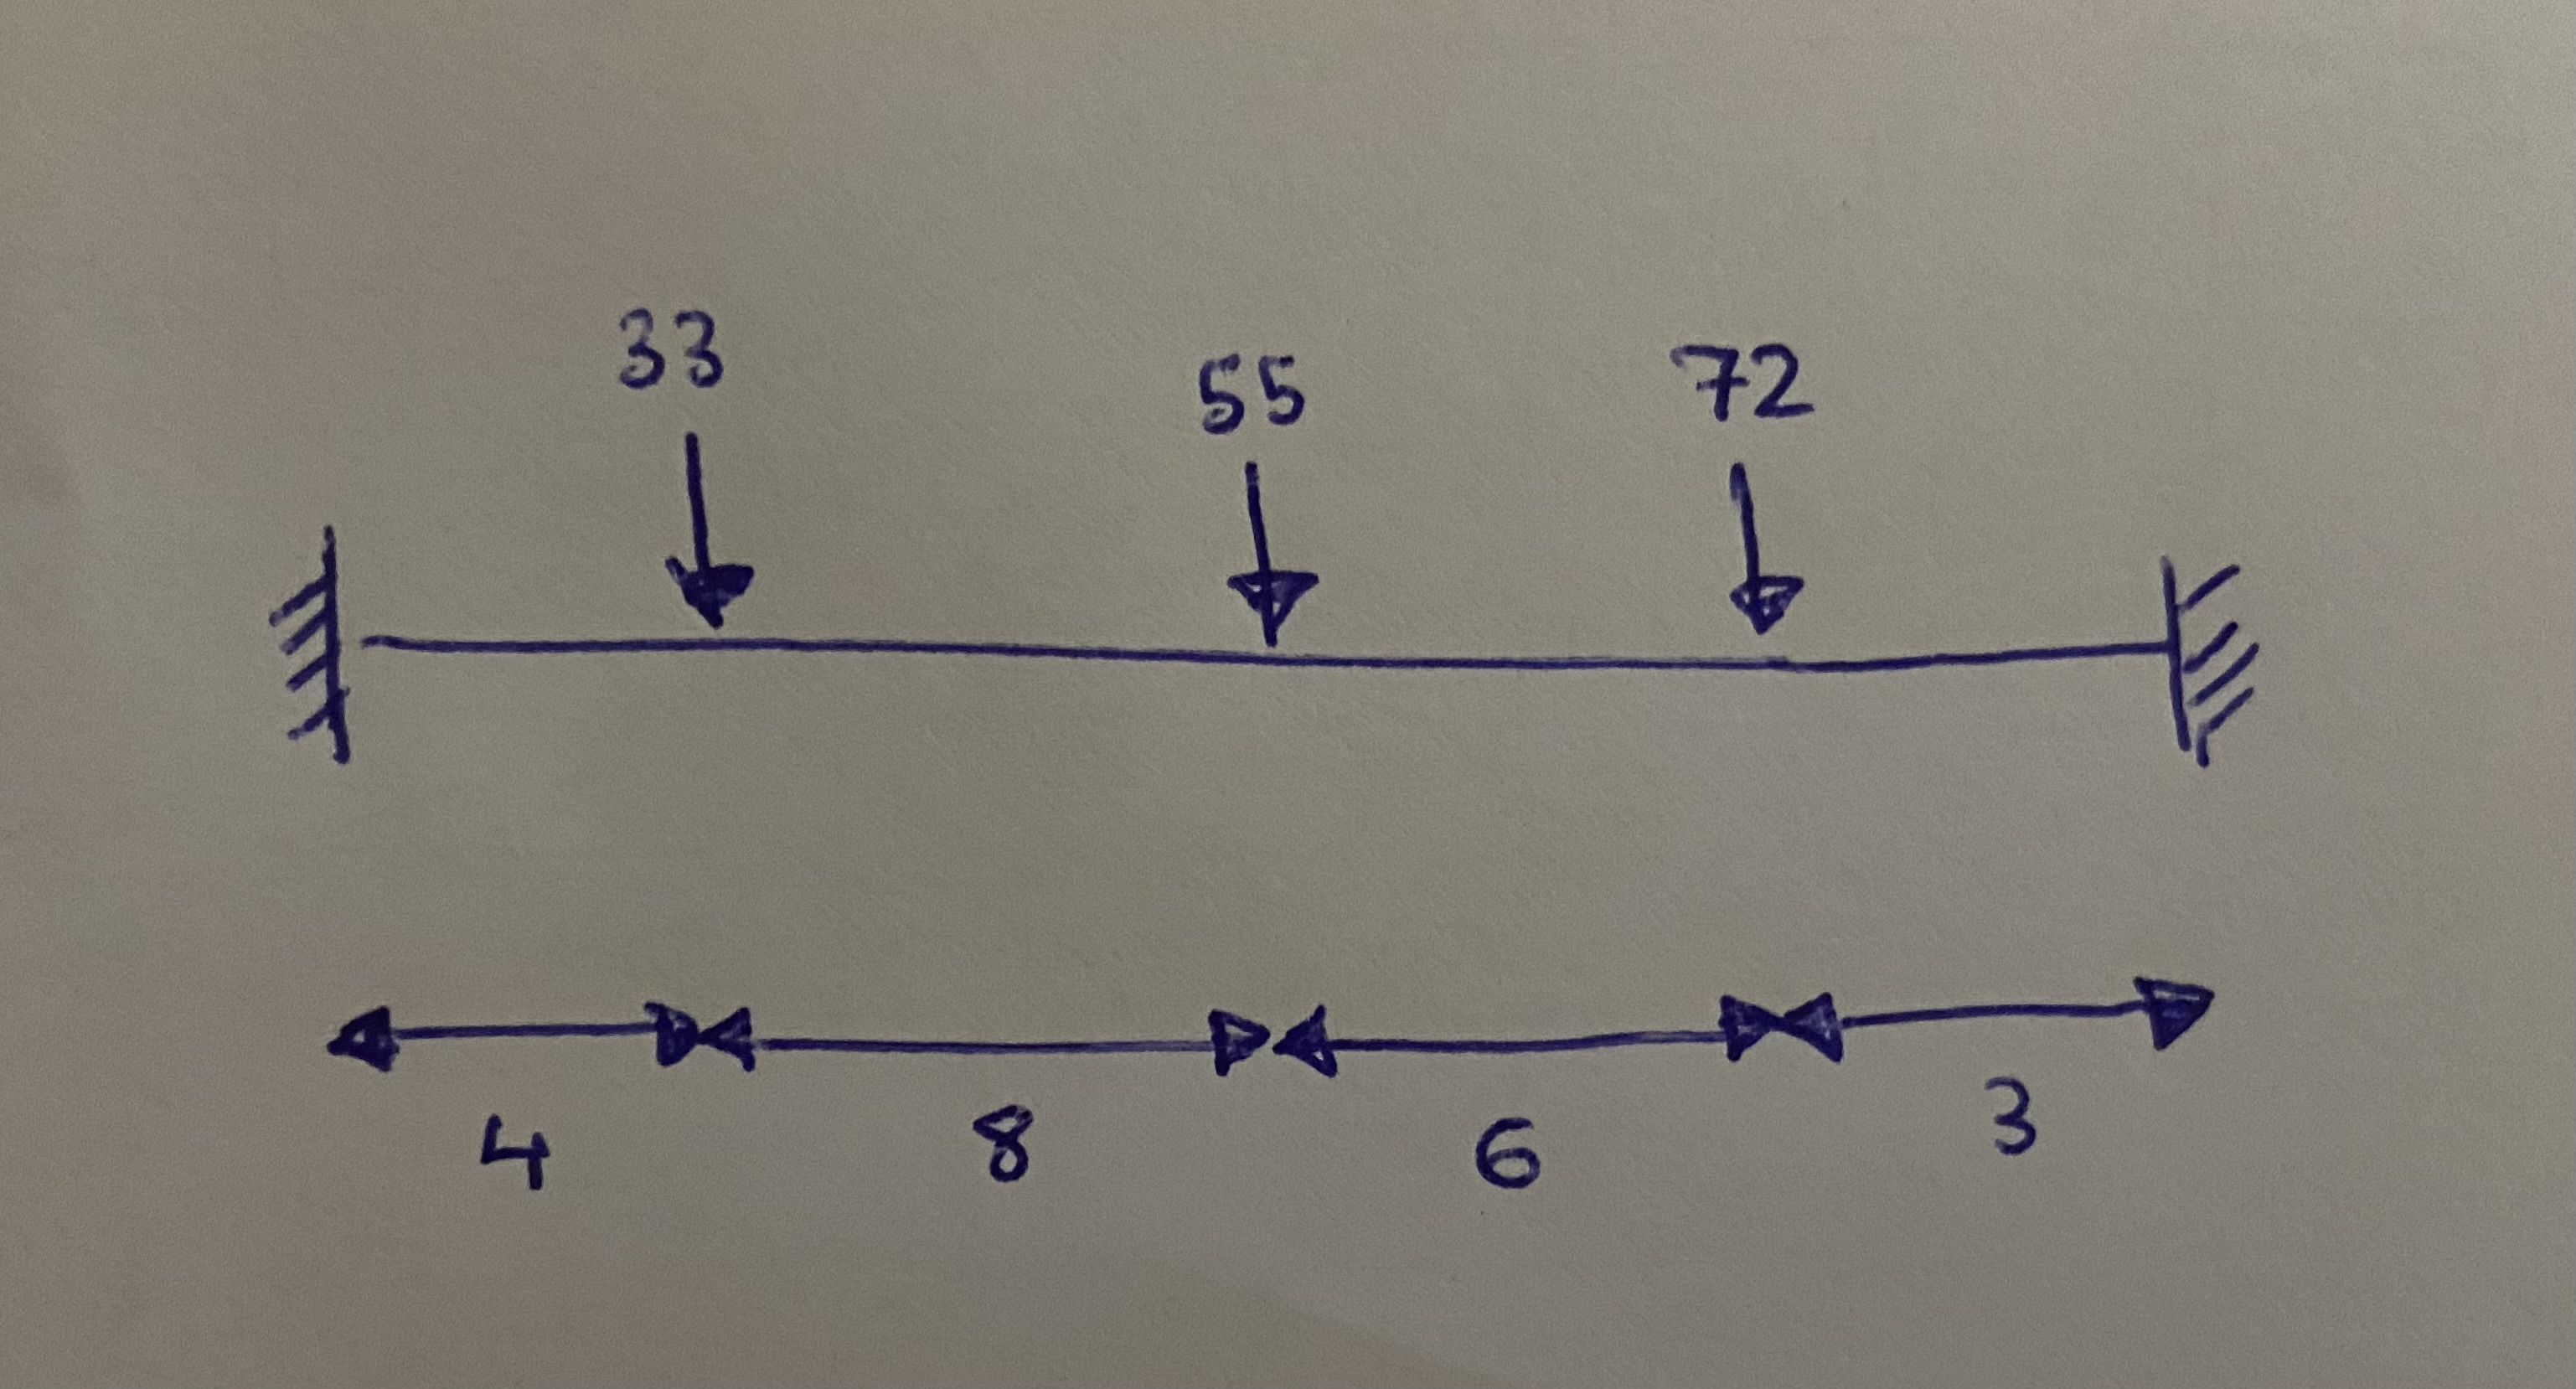 33 55 72
4 8 6 3